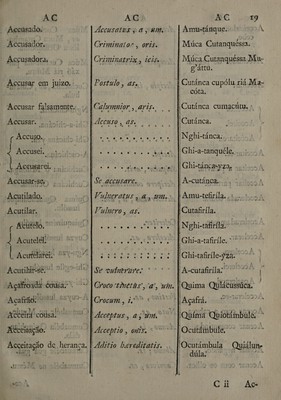 AC AC AC 19
Accusado. Accusatus, a, um. Amu-tánque.
Accusador. Criminator, oris. Múca Cutanquéssa.
Accusadora. Criminatrix, icis. Múca Cutanquéssa Mu-
g'áttu.
Accusar em juizo. Postulo, as. Cutánca cupólu riá Ma-
cúta.
Accusar falsamente. Calumnior, aris. Cutánca cumacútu.
Accusar. Accuso, as. Cutánca.
Accuso. Nghi-tánca.
Accusei. Ghi-a-tanquéle.
Accusarei. Ghi-tánca-yza.
Accusar-se. Se accusare. A-cutánca.
Acutilado. Vulneratus, a, um. Amu-tefiríla.
Acutilar. Vulnero, as. Cutafiríla.
Acutelo. Nghi-tafiríla.
Acutelei. Ghi-a-tafiríle.
Acutelarei. Ghi-tafiríle-yza.
Acutilar-se. Se vulnerare. A-cutafiríla.
Açafroada cousa. Croco tinctus, a, um. Quima
Açafrão. Crocum, i. Açafrá.
Acceita cousa. Acceptus, a, um. Quima
Acceitação. Acceptio, onis. Ocutámbule.
Acceitação de herança. Aditio hæreditatis. Ocutámbula
dúla.
C ii Ac-